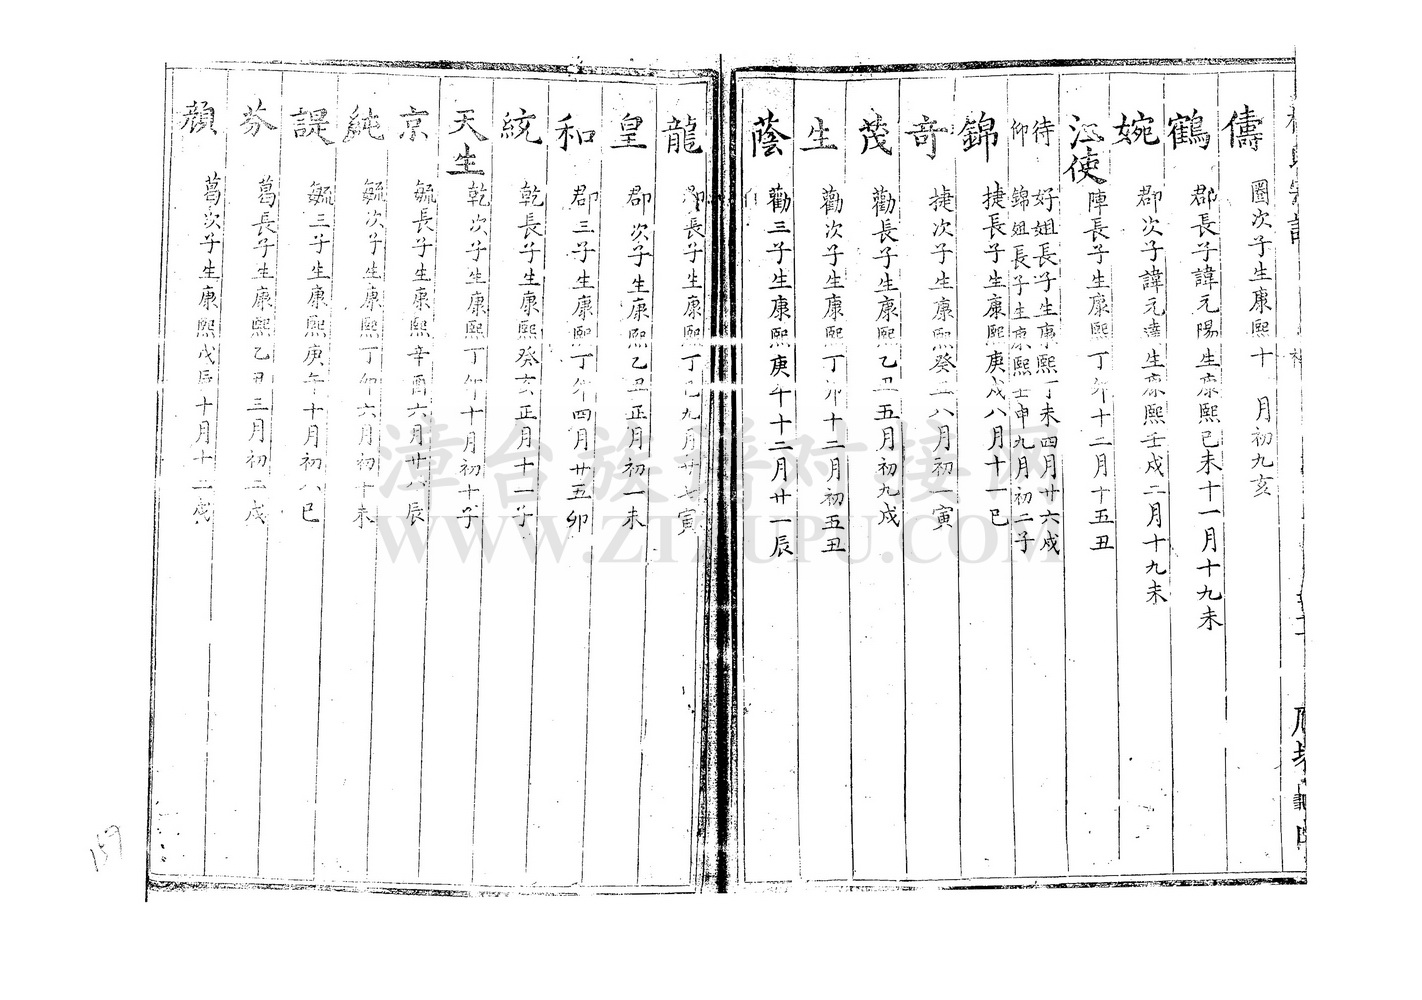 儔 圈次子生康熙十 月初九亥
鶴 郡長子諱元陽生康熙己未十一月十九未
婉 郡次子諱元達生康熙壬戌二月十九未
江使 陣長子生康熙丁卯十二月十五丑
待 好姐長子生康熙丁未四月廿六戌
仰 錦姐長子生康熙壬申九月初二子
錦 捷長子生康熙庚戌八月十一巳
奇 捷次子生康熙癸丑八月初一寅
茂 勸長子生康熙乙丑五月初九戌
生 勸次子生康熙丁卯十二月初五丑
蔭 勸三子生康熙庚午十二月廿一辰
龍 郡長子生康熙丁巳九月廿七寅
皇 郡次子生康熙乙丑正月初一未
和 郡三子生康熙丁卯四月廿五卯
紋 乾長子生康熙癸亥正月十一子
天生 乾次子生康熙丁卯十月初十子
京 毓長子生康熙辛酉六月廿八辰
純 毓次子生康熙丁卯六月初十未
諟 毓三子生康熙庚午十月初八巳
芬 葛長子生康熙乙丑三月初二戌
顏 葛次子生康熙戊辰十月十二戌
漳台族谱对接网
WWW.ZTZUPU.COM
159